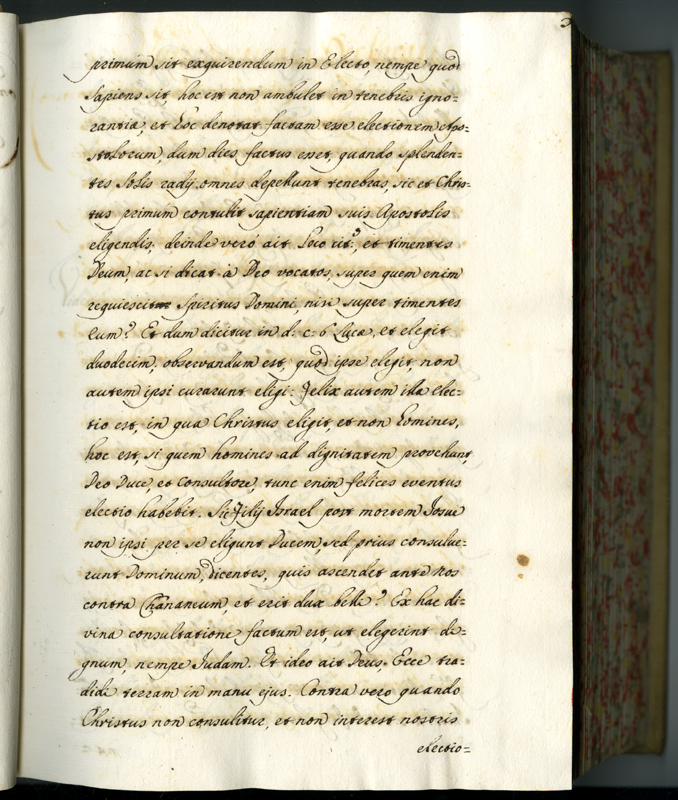 primum sit exquirendum in Electo, nempe quod
sapiens sit, hoc est non ambulet in tenebris igno=
rantiæ, et hoc denotat factam esse electionem Apo=
stolorum, dum dies factus esset, quando splenden=
tes solis radij omnes depellunt tenebras, sic et Chris=
tus primum contulit sapientiam suis Apostolis
eligendis, deinde verò ait loco cit:º, et timentes
Deum, ac si dicat à Deo vocatos, super quem enim
requiescit Spiritus Domini, nisi super timentes
eum? Et dum dicitur in d: c: 6 Lucæ, et elegit
duodecim, observandum est, quod ipse elegit, non
autem ipsi curarunt eligi: Felix autem illa elec=
tio est, in qua Christus eligit, et non homines,
hoc est, si quem homines ad dignitatem provehunt,
Deo Duce, et Consultore, tunc enim felices eventus
electio habebit. Sic Filij Israel post mortem Josue
non ipsi per se eligunt Ducem, sed prius consulue=
runt Dominum, dicentes, quis ascendet ante nos
contra Chananeum, et erit dux belli? Ex hac di=
vina consultatione factum est, ut elegerint di=
gnum, nempe Judam. Et ideo ait Deus. Ecce tra=
didi terram in manu ejus. Contra vero quando
Christus non consulitur, et non interest nostris
electio=